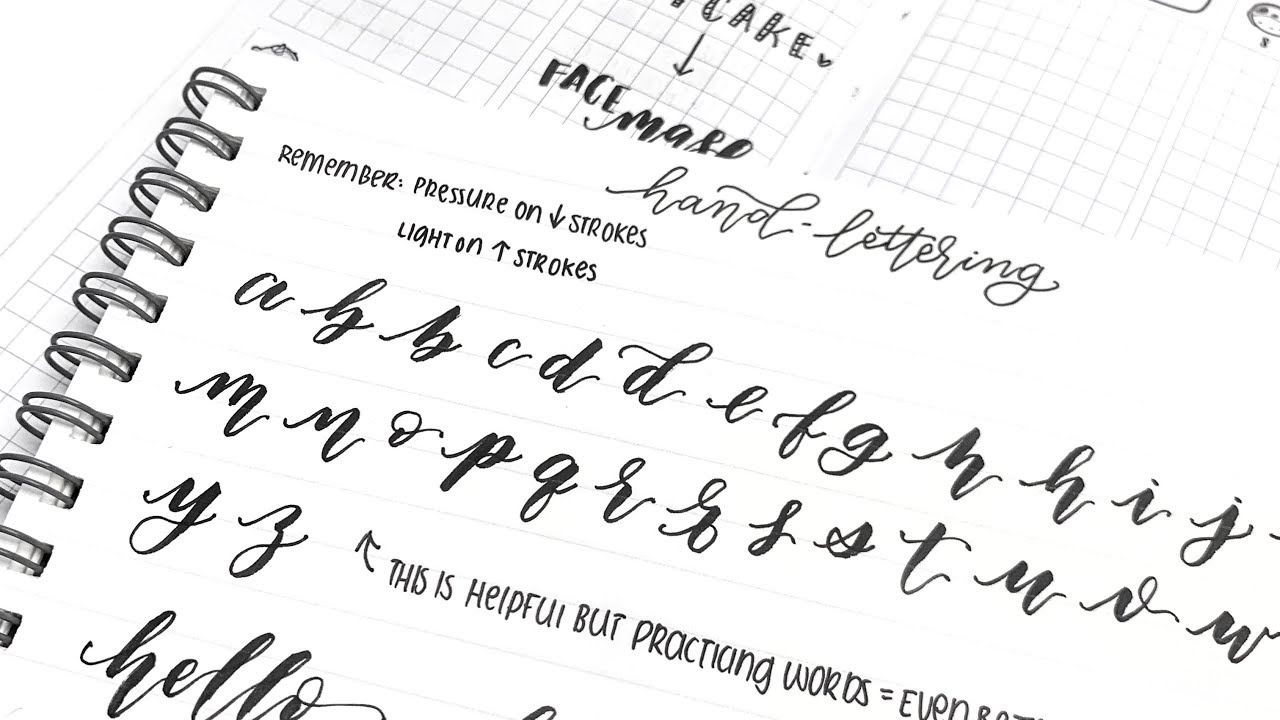 CAKE
↓
FACE
hand-lettering
Remember: Pressure on ↓ strokes
Light on ↑ strokes
a b b c d d e f g h h i j
m n o p q r r s s t u v w
y z
↑ This is helpful but practicing words = even
hello